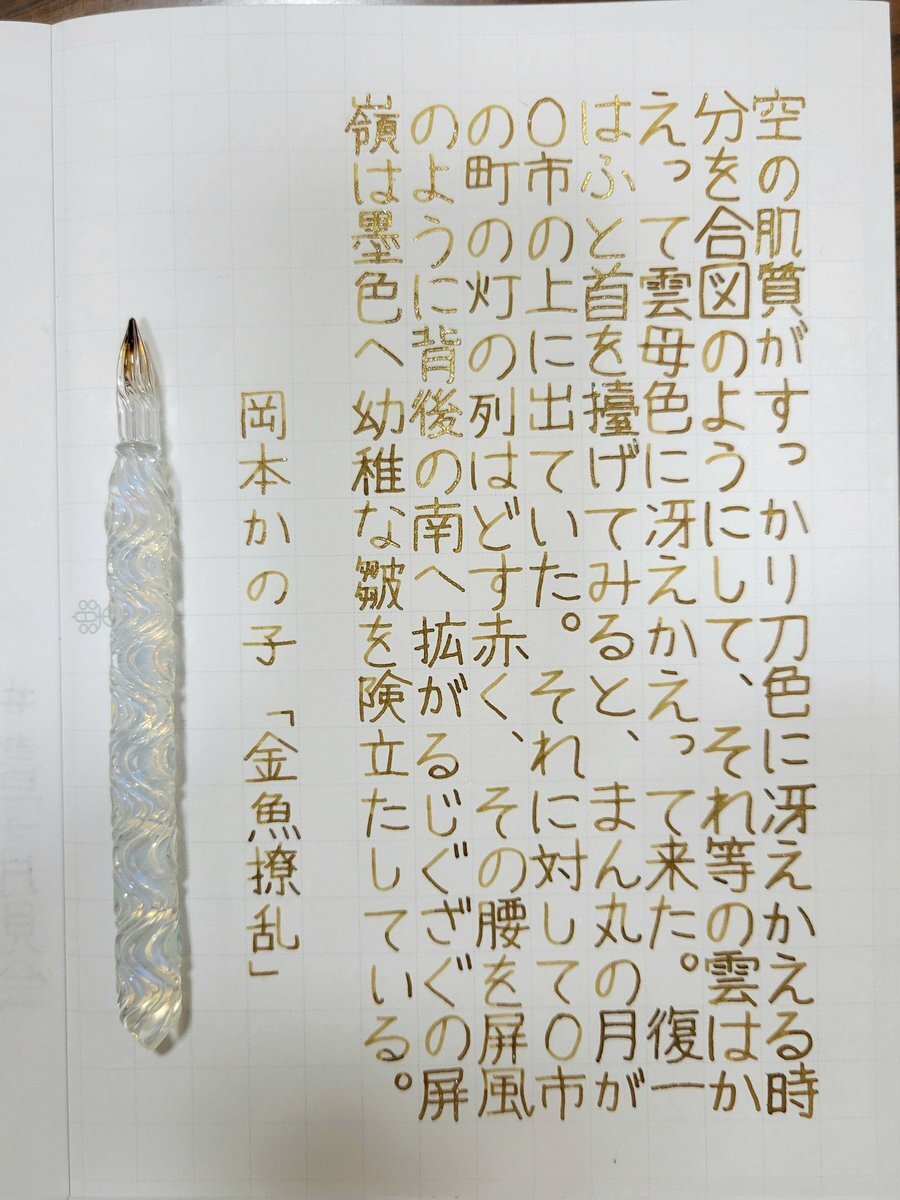 空の肌質がすっかり刀色に冴えかえる時
分を合図のようにして、それ等の雲はか
えって雲母色に冴えかえって来た。復一
はふと首を擡げてみると、まん丸の月が
〇市の上に出ていた。それに対して〇市
の町の灯の列はどす赤く、その腰を屏風
のように背後の南へ拡がるじぐざぐの屏
嶺は墨色へ幼稚な皺を険立たしている。
岡本かの子「金魚撩乱」